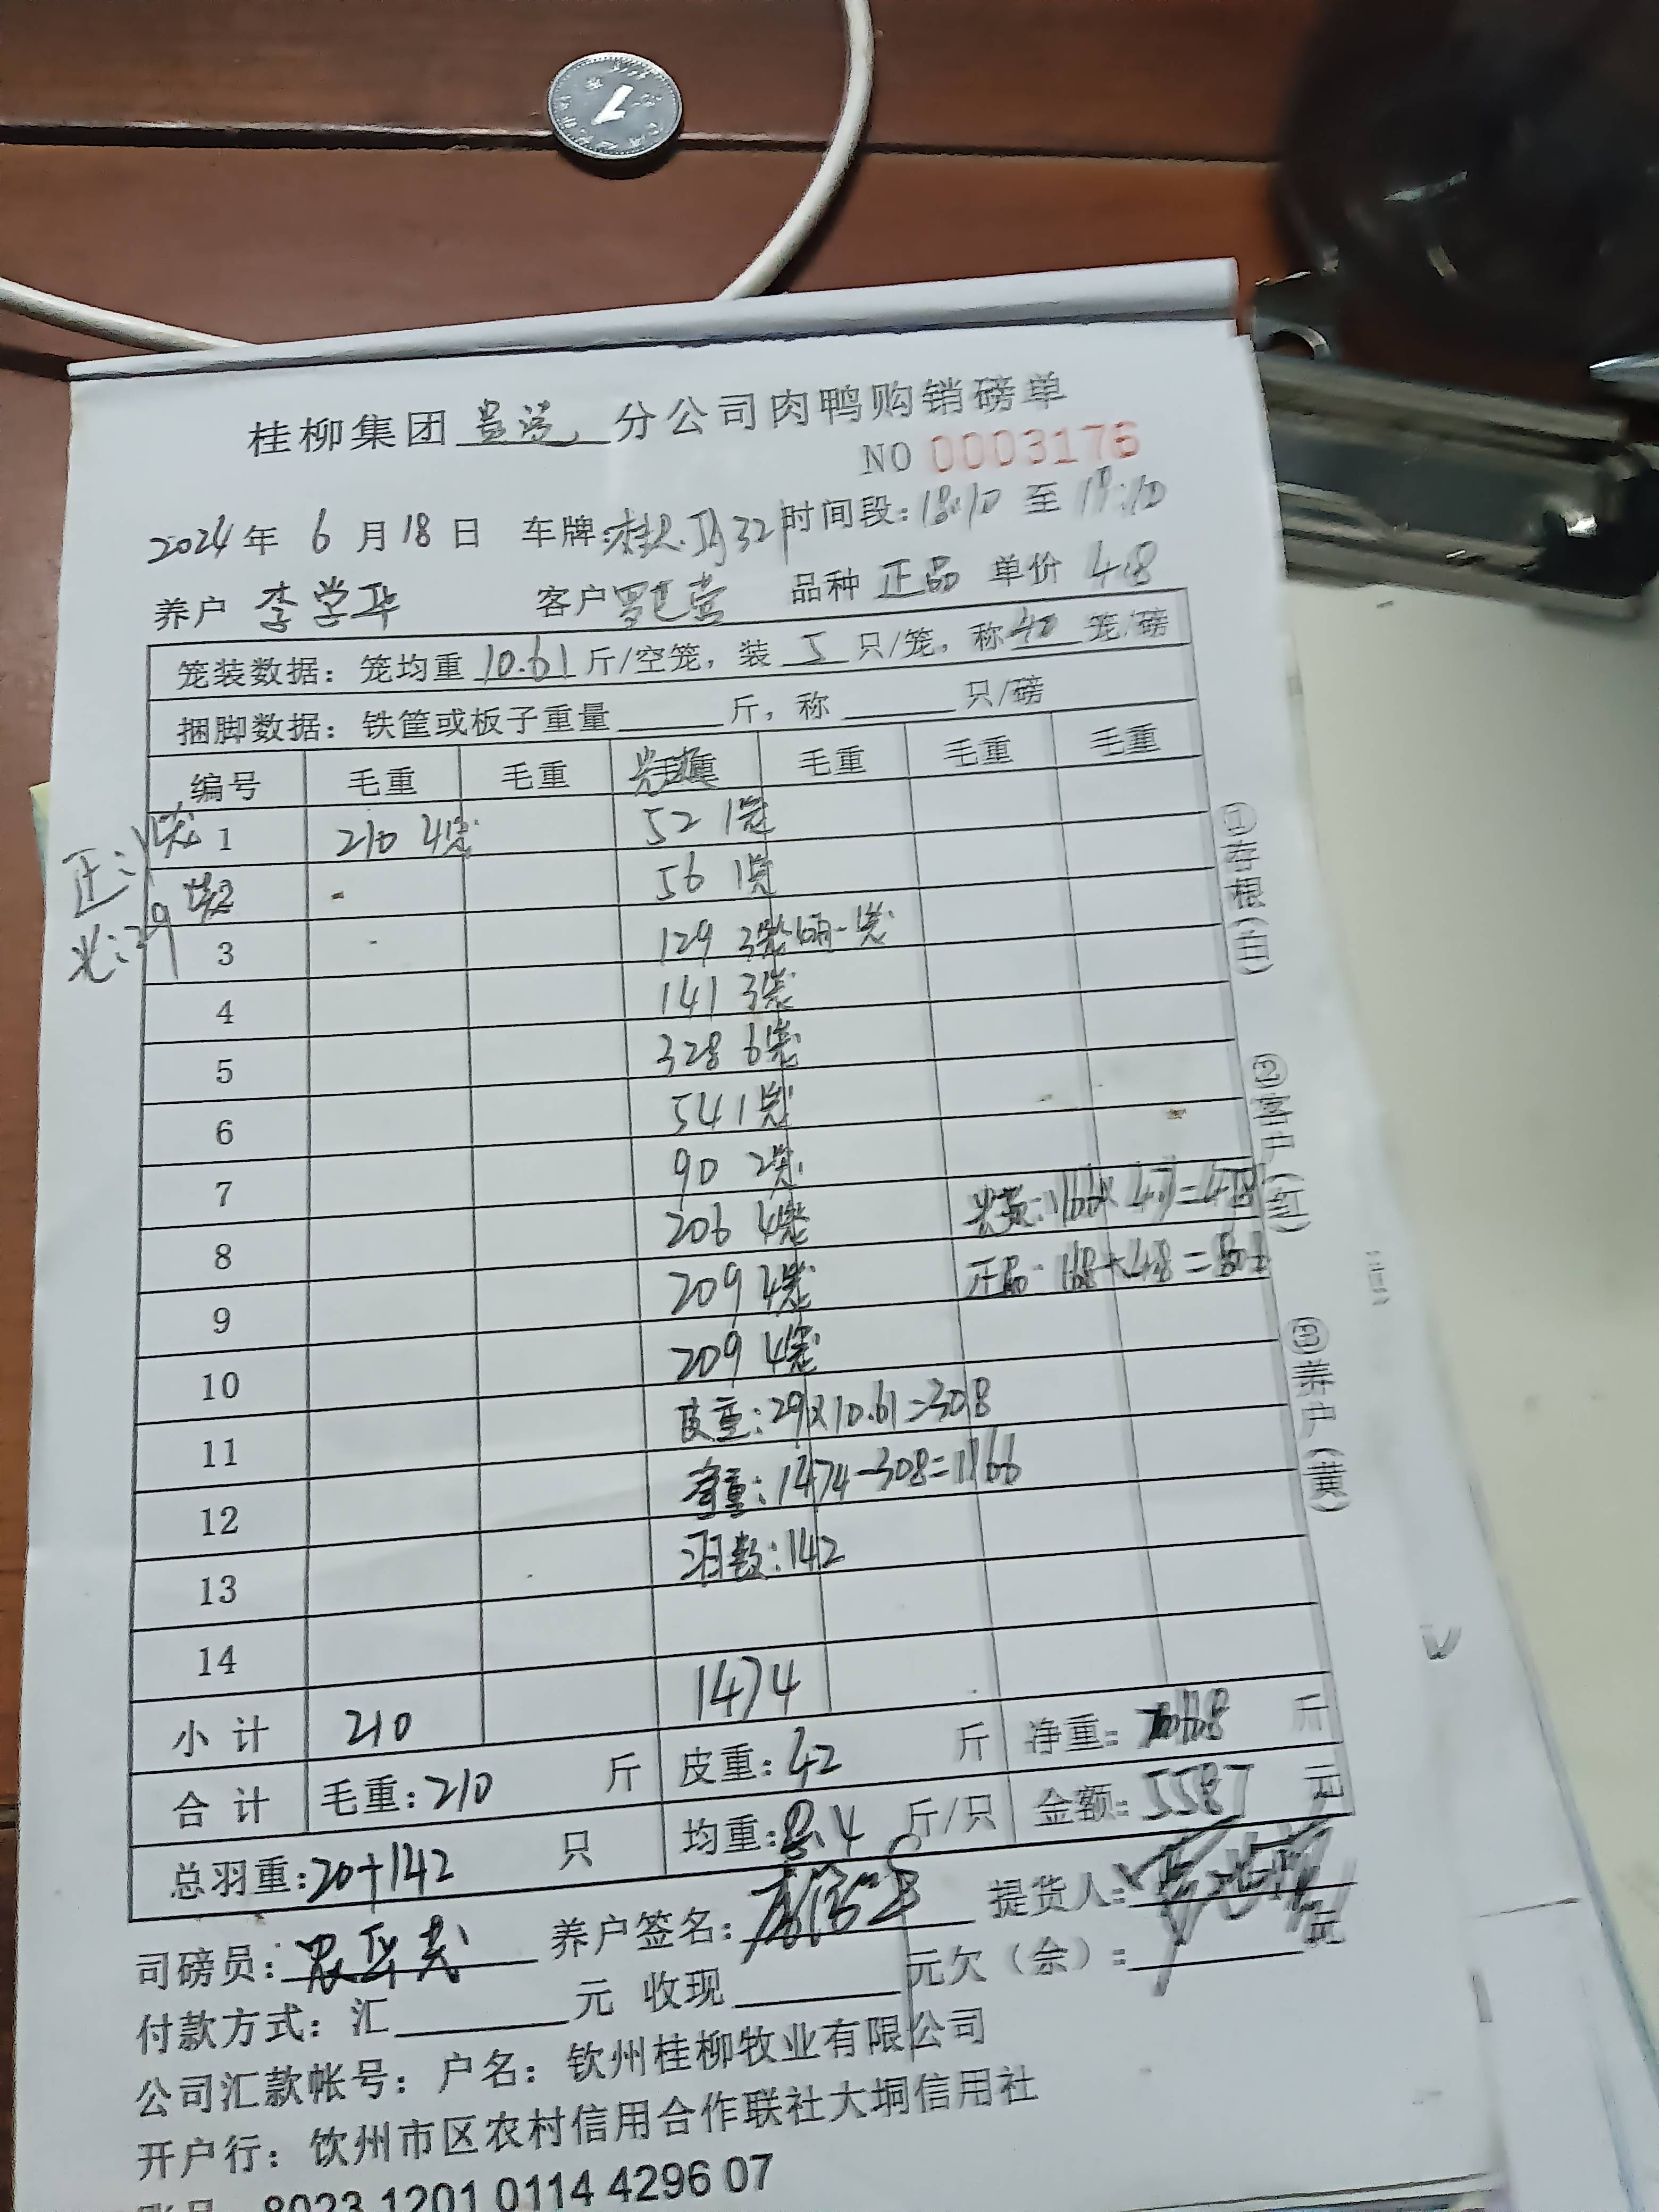 桂柳集团 贵港 分公司肉鸭购销磅单
NO 0003176
2024年 6 月 18 日 车牌: 时间段: 18:10 至 19:10
养户 李学华 客户 品种 正品 单价 4.8
笼装数据: 笼均重 10.61 斤/空笼, 装 5 只/笼, 称 40 笼/磅
捆脚数据: 铁筐或板子重量 斤, 称 只/磅
编号 毛重 毛重 毛重 毛重 毛重 毛重
1 210 4笼 52 1笼
2 56 1笼
3 129 3笼
4 141 3笼
5 328 6笼
6 54 1笼
7 90 2笼
8 206 4笼
9 209 4笼
10 209 4笼
11 皮重: 29×10.61=308
12 净重: 1474-308=1166
13 羽数: 142
14
小计 210 1474
合计 毛重: 210 斤 皮重: 42 斤 净重: 斤
总羽重: 20+142 只 均重: 8.4 斤/只 金额: 5587 元
司磅员: 养户签名: 提货人:
付款方式: 汇 元 收现 元欠(余): 元
公司汇款帐号: 户名: 钦州桂柳牧业有限公司
开户行: 钦州市区农村信用合作联社大垌信用社
8023 1201 0114 4296 07
正:4
光:29
正品: 168×4.8=
①存根(白) ②客户(红) ③养户(黄)
1